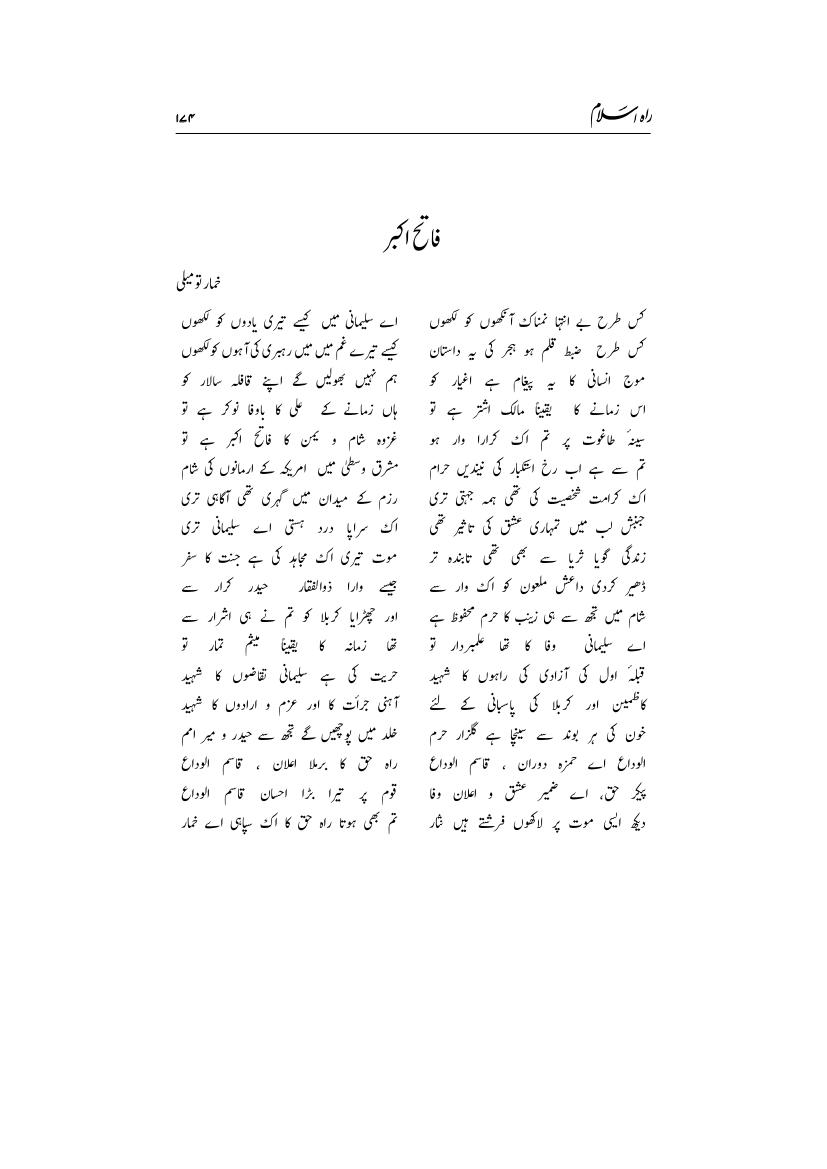 راہ اسلام ۱۷۴
فاتح اکبر
خمار تومیلی
کس طرح بے انتہا نمناک آنکھوں کو لکھوں اے سلیمانی میں کیسے تیری یادوں کو لکھوں
کس طرح ضبط قلم ہو ہجر کی یہ داستان کیسے تیرے غم میں میں رہبری کی آہوں کو لکھوں
موج انسانی کا یہ پیغام ہے اغیار کو ہم نہیں بھولیں گے اپنے قافلہ سالار کو
اس زمانے کا یقیناً مالک اشتر ہے تو ہاں زمانے کے علی کا باوفا نوکر ہے تو
سینۂ طاغوت پر تم اک کرارا وار ہو غزوہ شام و یمن کا فاتح اکبر ہے تو
تم سے ہے اب رخ استکبار کی نیندیں حرام مشرق وسطیٰ میں امریکہ کے ارمانوں کی شام
اک کرامت شخصیت کی تھی ہمہ جہتی تری رزم کے میدان میں گہری تھی آگاہی تری
جنبش لب میں تمہاری عشق کی تاثیر تھی اک سراپا درد ہستی اے سلیمانی تری
زندگی گویا ثریا سے بھی تھی تابندہ تر موت تیری اک مجاہد کی ہے جنت کا سفر
ڈھیر کردی داعش ملعون کو اک وار سے جیسے وارا ذوالفقار حیدر کرار سے
شام میں تجھ سے ہی زینب کا حرم محفوظ ہے اور چھڑایا کربلا کو تم نے ہی اشرار سے
اے سلیمانی وفا کا تھا علمبردار تو تھا زمانہ کا یقیناً میثم تمار تو
قبلۂ اول کی آزادی کی راہوں کا شہید حریت کی ہے سلیمانی تقاضوں کا شہید
کاظمین اور کربلا کی پاسبانی کے لئے آہنی جرأت کا اور عزم و ارادوں کا شہید
خون کی ہر بوند سے سینچا ہے گلزار حرم خلد میں پوچھیں گے تجھ سے حیدر و میر امم
الوداع اے حمزہ دوران ، قاسم الوداع راہ حق کا برملا اعلان ، قاسم الوداع
پیکر حق، اے ضمیر عشق و اعلان وفا قوم پر تیرا بڑا احسان قاسم الوداع
دیکھ ایسی موت پر لاکھوں فرشتے ہیں نثار تم بھی ہوتا راہ حق کا اک سپاہی اے خمار